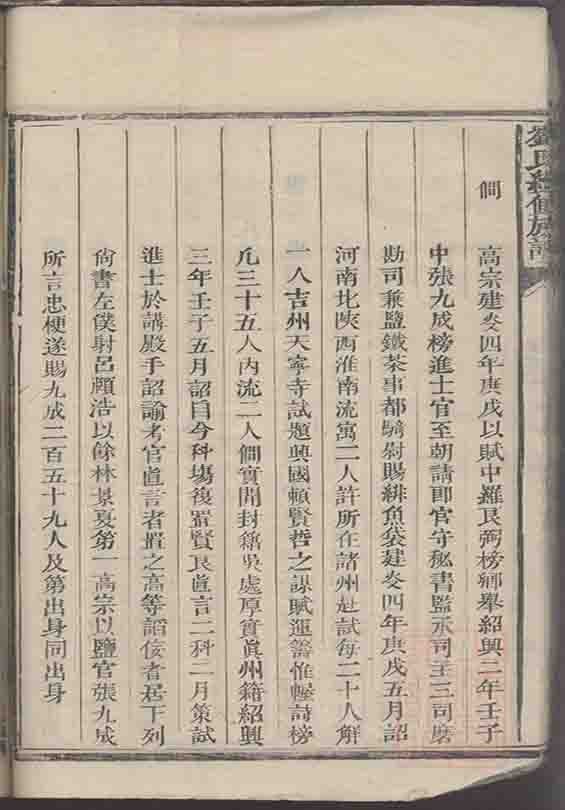 劉氏續修族譜
僴
高宗建炎四年庚戌以賦中羅艮弼榜鄉舉紹興二年壬子
中張九成榜進士官至朝請郎官守秘書監丞司主三司磨
勘司兼鹽鐵茶事都騎尉賜緋魚袋建炎四年庚戌五月詔
河南北陝西淮南流寓二人許所在諸州赴試每二十人解
一人吉州天寧寺試題興國賴賢哲之謀賦運籌惟幄詩榜
凡三十五人內流二人僴實開封籍吳處厚實眞州籍紹興
三年壬子五月詔自今科場復置賢艮直言二科二月策試
進士於講殿手詔諭考官直言者置之高等謟佞者居下列
尙書左僕射呂頤浩以餘林景夏第一高宗以鹽官張九成
所言忠梗遂賜九成二百五十九人及第出身同出身